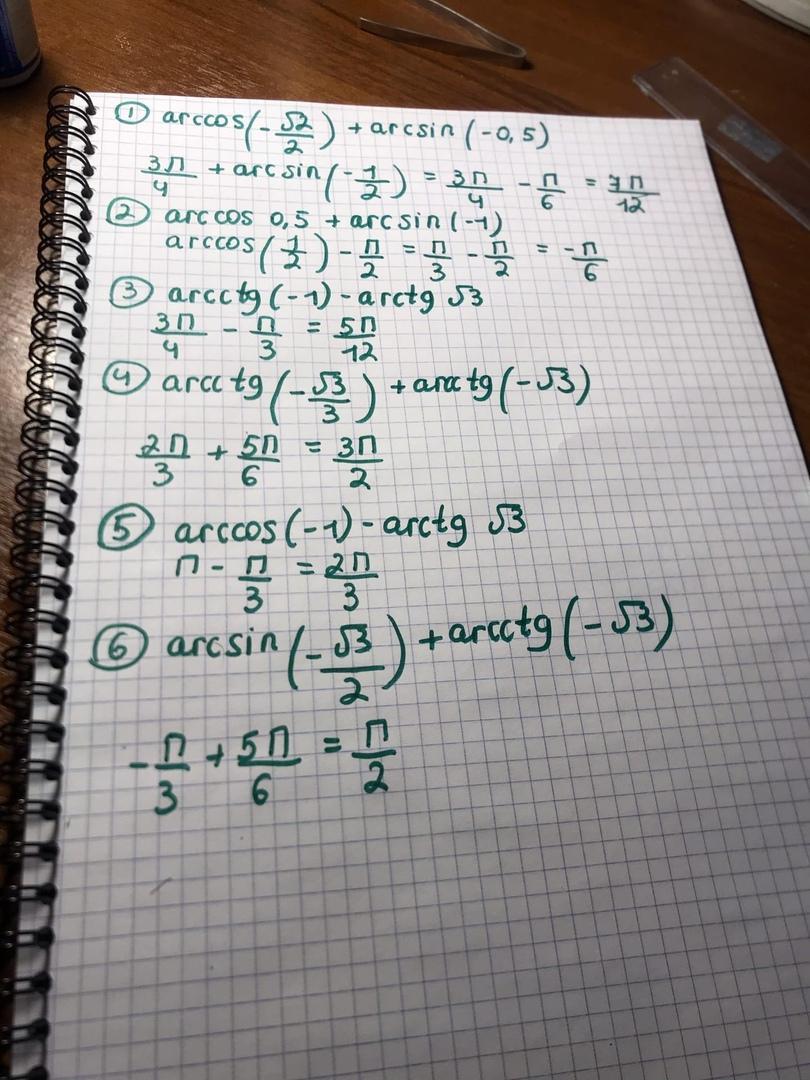 ① arccos(-√2/2) + arcsin(-0,5)
3π/4 + arcsin(-1/2) = 3π/4 - π/6 = 7π/12
② arccos 0,5 + arcsin(-1)
arccos(1/2) - π/2 = π/3 - π/2 = -π/6
③ arcctg(-1) - arctg √3
3π/4 - π/3 = 5π/12
④ arcctg(-√3/3) + arcctg(-√3)
2π/3 + 5π/6 = 3π/2
⑤ arccos(-1) - arctg √3
π - π/3 = 2π/3
⑥ arcsin(-√3/2) + arcctg(-√3)
-π/3 + 5π/6 = π/2